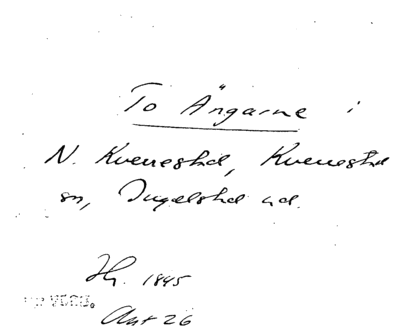 To Ängarne i
N. Kverrestad, Kverrestad
sn, Ingelstad hd.
1845
Akt 26